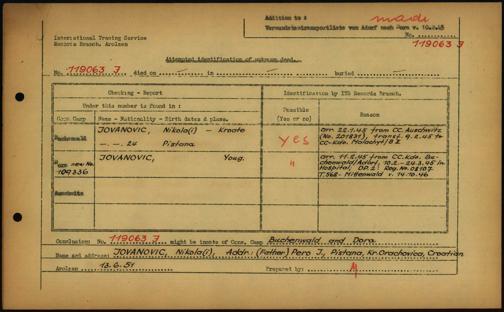 Addition to :
made
Versandeseinsatzportliste von Adorf nach Dora v. 10.2.45
No.
119063 J
International Tracing Service
Records Branch, Arolsen
Attempted identification of unknown dead.
No. 119063 J died on in buried
Checking - Report
Identification by ITS Records Branch.
Under this number is found in :
Possible
(Yes or no)
Reason
Conc Camp Name - Nationality - Birth dates & place.
Buchenwald
JOVANOVIC, Nikola(i) - Kroate
-.-. 24 Pistana
yes
arr. 22.1.45 from CC. Auschwitz
(No. 201831), transf. 4.2.45 to
CC-Kdo. Malachyt/BZ
new No.
109336
JOVANOVIC, Youg.
"
arr. 11.2.45 from CC. Kdo. Bu-
chenwald/Adorf, 10.2. - 24.3.45 in
Hospital, DP.2: Reg. No. 08107
T.562 - Mittenwald v. 14.10.46
Auschwitz
Conclusion: No. 119063 J might be inmate of Conc. Camp Buchenwald and Dora.
Name and address: JOVANOVIC, Nikola(i), Addr: (Father) Pero J., Pistana, Kr. Orachovica, Croatien
Arolsen 13.6.51 Prepared by: